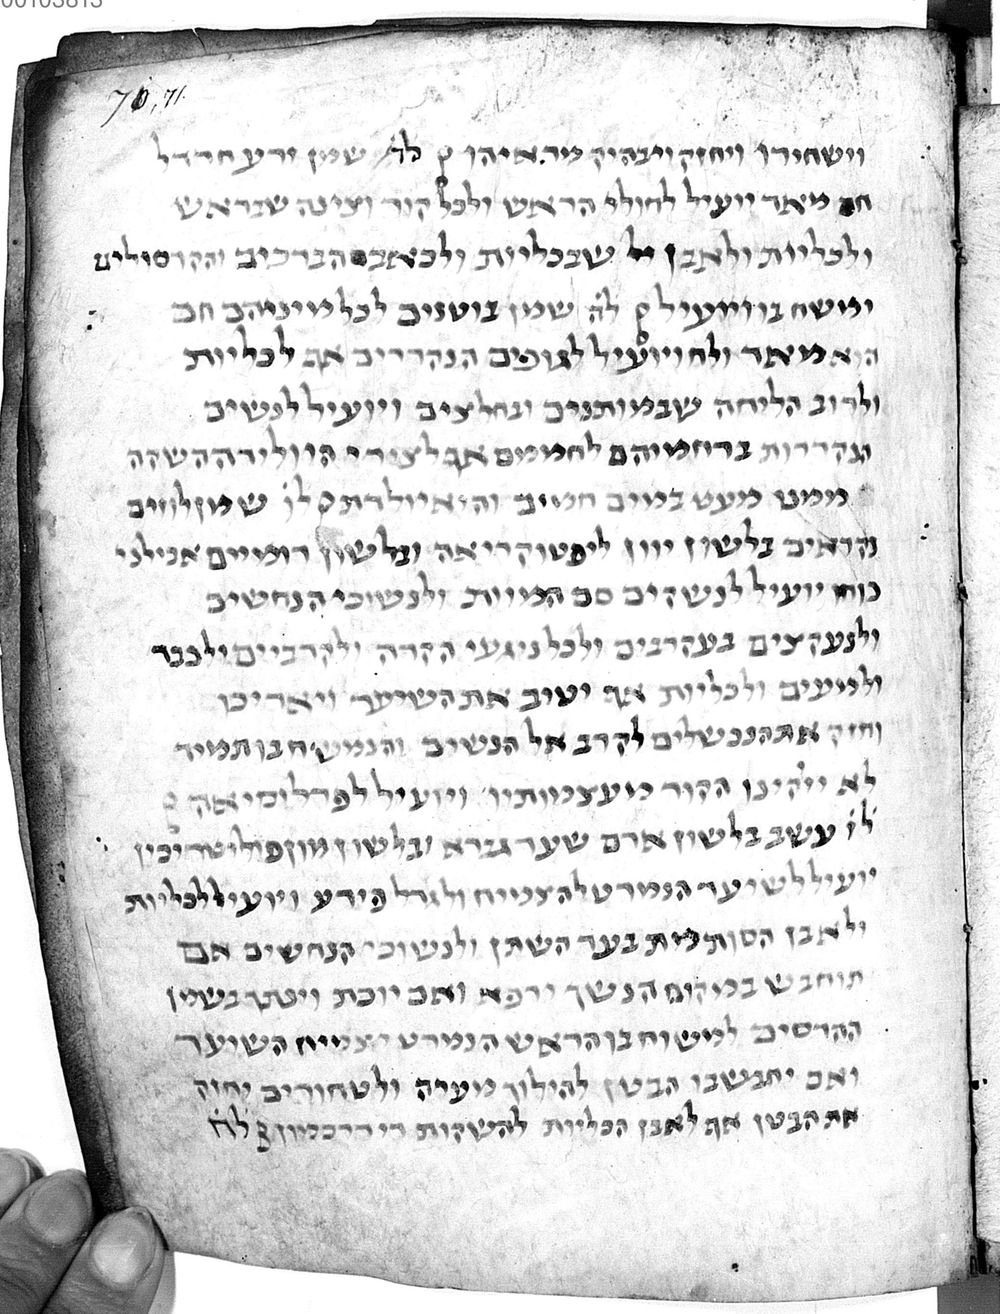 00103813
70, 71.
וישחירו ויחזק ויבהיק מראיהו לד שמן זרע חרדל
חם מאד יועיל לחולי הראש ולכל קור וצינה שבראש
ולכליות ולאבן של שבכליות ולכאב הברכים והקרסולים
ימשח בו ויועיל לה שמן בוטנים לכל מיניהם חם
הוא מאד ולח ויועיל לגופים הנקררים אף לכליות
ולרוב הליחה שבמותנים ובחלצים ויועיל לנשים
הנקררות ברחמיהם לחממם אף לצירי היולידה השקה
ממנו מעט במים חמים והיא יולדת לו שמן לוזים
נקראים בלשון יוון ובלשון רומיים
כוחו יועיל לנשקים סם המוות ולנשוכי הנחשים
ולנעקצים בעקרבים ולכל ניגעי הקרה ולקרביים ולכבד
ולמעים ולכליות אף יטיב את השיער ויאריכו
וחזק את הנכשלים לקרב אל הנשים והנמשח בו תמיד
לא יזקינו הקור מעצמותיו ויועיל
לז עשב בלשון ארם שער גברא ובלשון יוון פוליטריכון
יועיל לשיער הנמרט להצמיח ולגדל הזרע ויועיל לכליות
ולאבן הסותמת בעד השתן ולנשוכי הנחשים אם
תוחבש במקום הנשך ירפא ואם יוכת ויטתר בשמן
ההדסים למשוח בו הראש הנמרט יצמיח השיער
ואם יחבשבו הבטן להילוך מעיה ולטחורים יחזק
את הבטן אף לאבן הכליות להשקות לח